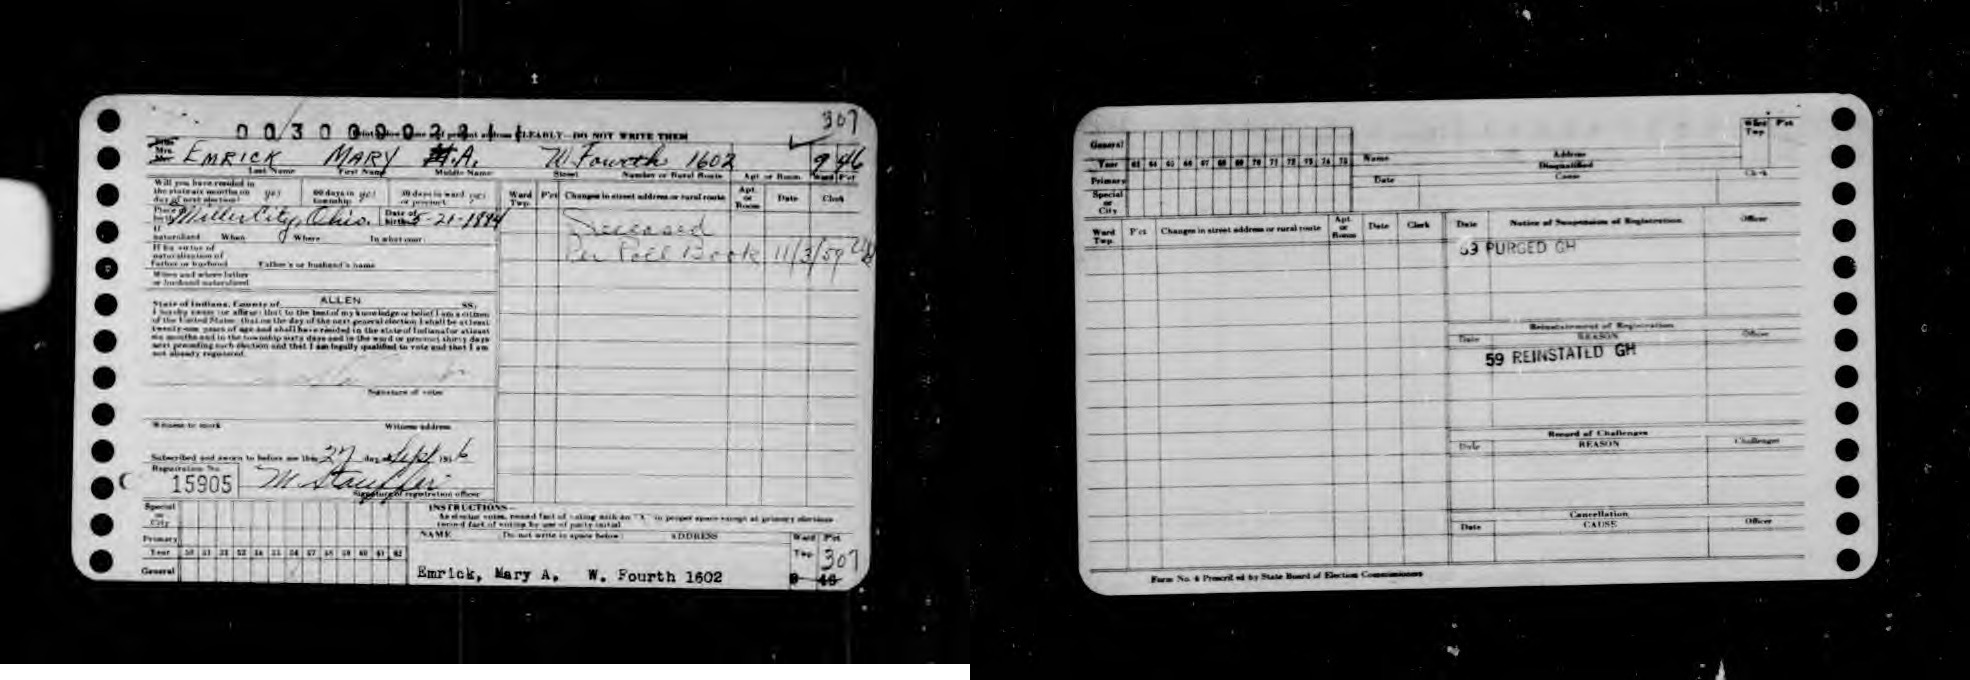 307
Print below name and present address CLEARLY—DO NOT WRITE THEM
Mrs. EMRICK MARY A. W. Fourth 1602 9 46
Last Name First Name Middle Name Street Number or Rural Route Apt or Room Ward P'ct
Will you have resided in
the state six months on
day of next election? yes
60 days in
township yes
30 days in ward
or precinct yes
Miller City, Ohio.
Date of
birth 5-21-1894
If
naturalized When Where In what court
If by virtue of
naturalization of
Father or husband Father's or husband's name
When and where father
or husband naturalized
Ward
Twp. P'ct Changes in street address or rural route Apt.
or
Room Date Clerk
Deceased
Per Poll Book 11/3/59
State of Indiana, County of ALLEN SS:
I hereby swear (or affirm) that to the best of my knowledge or belief I am a citizen
of the United States; that on the day of the next general election I shall be at least
twenty-one years of age and shall have resided in the state of Indiana for at least
six months and in the township sixty days and in the ward or precinct thirty days
next preceding such election and that I am legally qualified to vote and that I am
not already registered.
Signature of voter
Witness to mark Witness address
Subscribed and sworn to before me this 27 day of Sept 1956
Registration No.
15905 M Stauffer
Signature of registration officer
Special
or
City
Primary
Year 50 51 52 53 54 55 56 57 58 59 60 61 62
General
INSTRUCTIONS—
As elector votes, record fact of voting with an "X" in proper space except at primary elections
record fact of voting by use of party initial
NAME Do not write in space below ADDRESS Ward P'ct
Twp. 307
Emrick, Mary A. W. Fourth 1602 9 46
General
Year 63 64 65 66 67 68 69 70 71 72 73 74 75
Primary
Special
or
City
Name Address Ward
Twp. P'ct
Disqualified
Date Cause Clerk
Ward
Twp. P'ct Changes in street address or rural route Apt.
or
Room Date Clerk
Date Notice of Suspension of Registration Officer
63 PURGED GH
Reinstatement of Registration
Date REASON Officer
59 REINSTATED GH
Record of Challenges
Date REASON Challenger
Cancellation
Date CAUSE Officer
Form No. 6 Prescribed by State Board of Election Commissioners